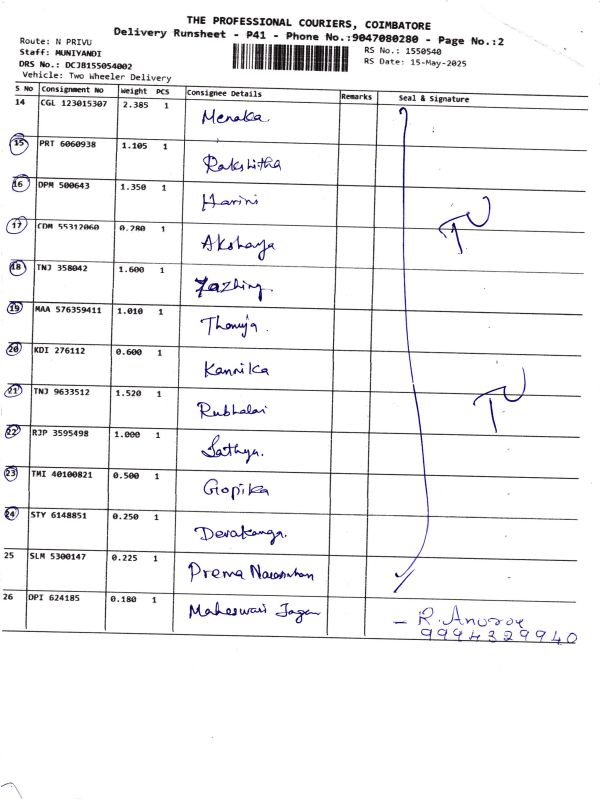 THE PROFESSIONAL COURIERS, COIMBATORE
Delivery Runsheet - P41 - Phone No.:9047080280 - Page No.:2
Route: N PRIVU
Staff: MUNIYANDI
DRS No.: DCJB155054002
Vehicle: Two Wheeler Delivery
RS No.: 1550540
RS Date: 15-May-2025
S No Consignment No Weight PCS Consignee Details Remarks Seal & Signature
14 CGL 123015307 2.385 1 Menaka
15 PRT 6060938 1.105 1 Rakshitha
16 DPM 500643 1.350 1 Harini
17 CDM 55312060 0.280 1 Akshaya
TU
18 TNJ 358042 1.600 1
19 MAA 576359411 1.010 1 Thanuja.
20 KDI 276112 0.600 1 Kannika
21 TNJ 9633512 1.520 1
TU
22 RJP 3595498 1.000 1 Sathya.
23 TMI 40100821 0.500 1 Gopika
24 STY 6148851 0.250 1
25 SLM 5300147 0.225 1 Prema
26 DPI 624185 0.180 1 Maheswari Jagan
- R.
9994329940